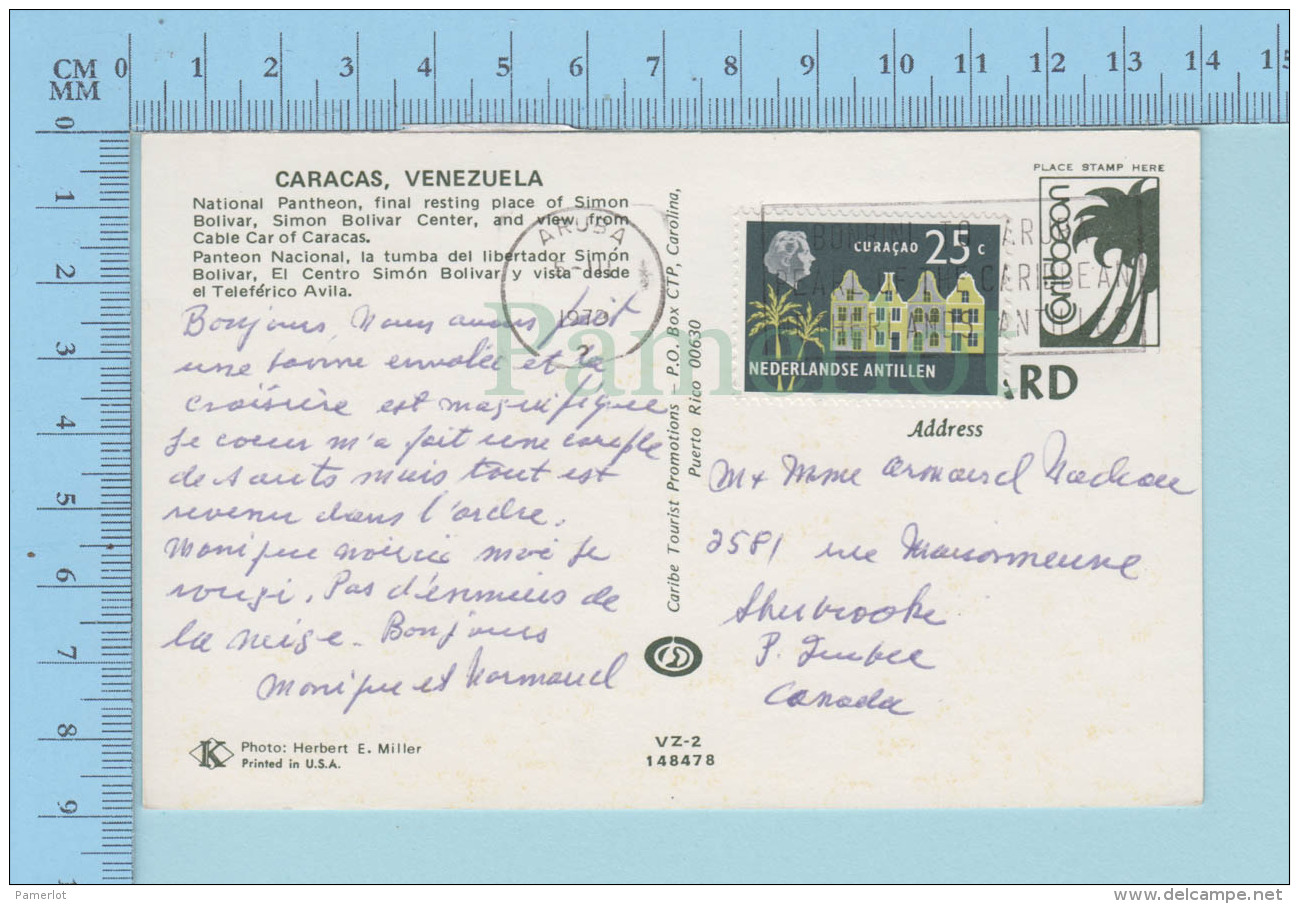 CM 0 1 2 3 4 5 6 7 8 9 10 11 12 13 14 15
MM
0
1
2
3
4
5
6
7
8
9
1
CARACAS, VENEZUELA
National Pantheon, final resting place of Simon
Bolivar, Simon Bolivar Center, and view from
Cable Car of Caracas.
Panteon Nacional, la tumba del libertador Simón
Bolivar, El Centro Simón Bolivar y vista desde
el Teleférico Avila.
Bonjour, Nous avons fait
une bonne envolée et la
croisière est magnifique
Le coeur m'a fait une couple
de sauts mais tout est
revenu dans l'ordre.
Monique noircie moi je
rougi. Pas d'ennuies de
la neige. Bonjours
Monique et Normand
K
Photo: Herbert E. Miller
Printed in U.S.A.
ARUBA
1972
Caribe Tourist Promotions – P.O. Box CTP, Carolina,
Puerto Rico 00630
VZ-2
148478
PLACE STAMP HERE
Caribbean
BONBINI TO ARUBA
PEARL OF THE CARIBBEAN
ANTILLES
CURAÇAO 25 c
NEDERLANDSE ANTILLEN
ARD
Address
M+ Mme Armand Nadeau
2581 rue
Sherbrooke
P. Quebec
Canada
Pamerlot
Pamerlot
www.delcampe.net